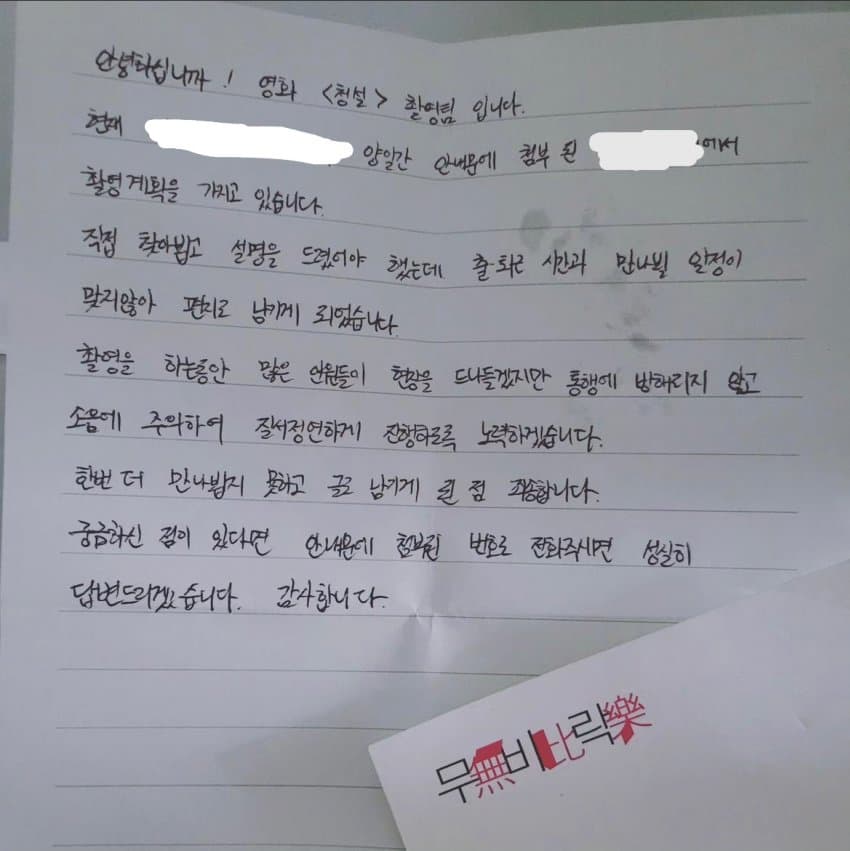 안녕하십니까! 영화 <청설> 촬영팀 입니다.
현재 양일간 안내문에 첨부 된 에서
촬영계획을 가지고 있습니다.
직접 찾아뵙고 설명을 드렸어야 했는데 출·퇴근 시간과 만나뵐 일정이
맞지않아 편지로 남기게 되었습니다.
촬영을 하는동안 많은 인원들이 현장을 드나들겠지만 통행에 방해되지 않고
소음에 주의하여 질서정연하게 진행하도록 노력하겠습니다.
한번 더 만나뵙지 못하고 글로 남기게 된 점 죄송합니다.
궁금하신 점이 있다면 안내문에 첨부된 번호로 전화주시면 성실히
답변드리겠습니다. 감사합니다.
무無비比락樂